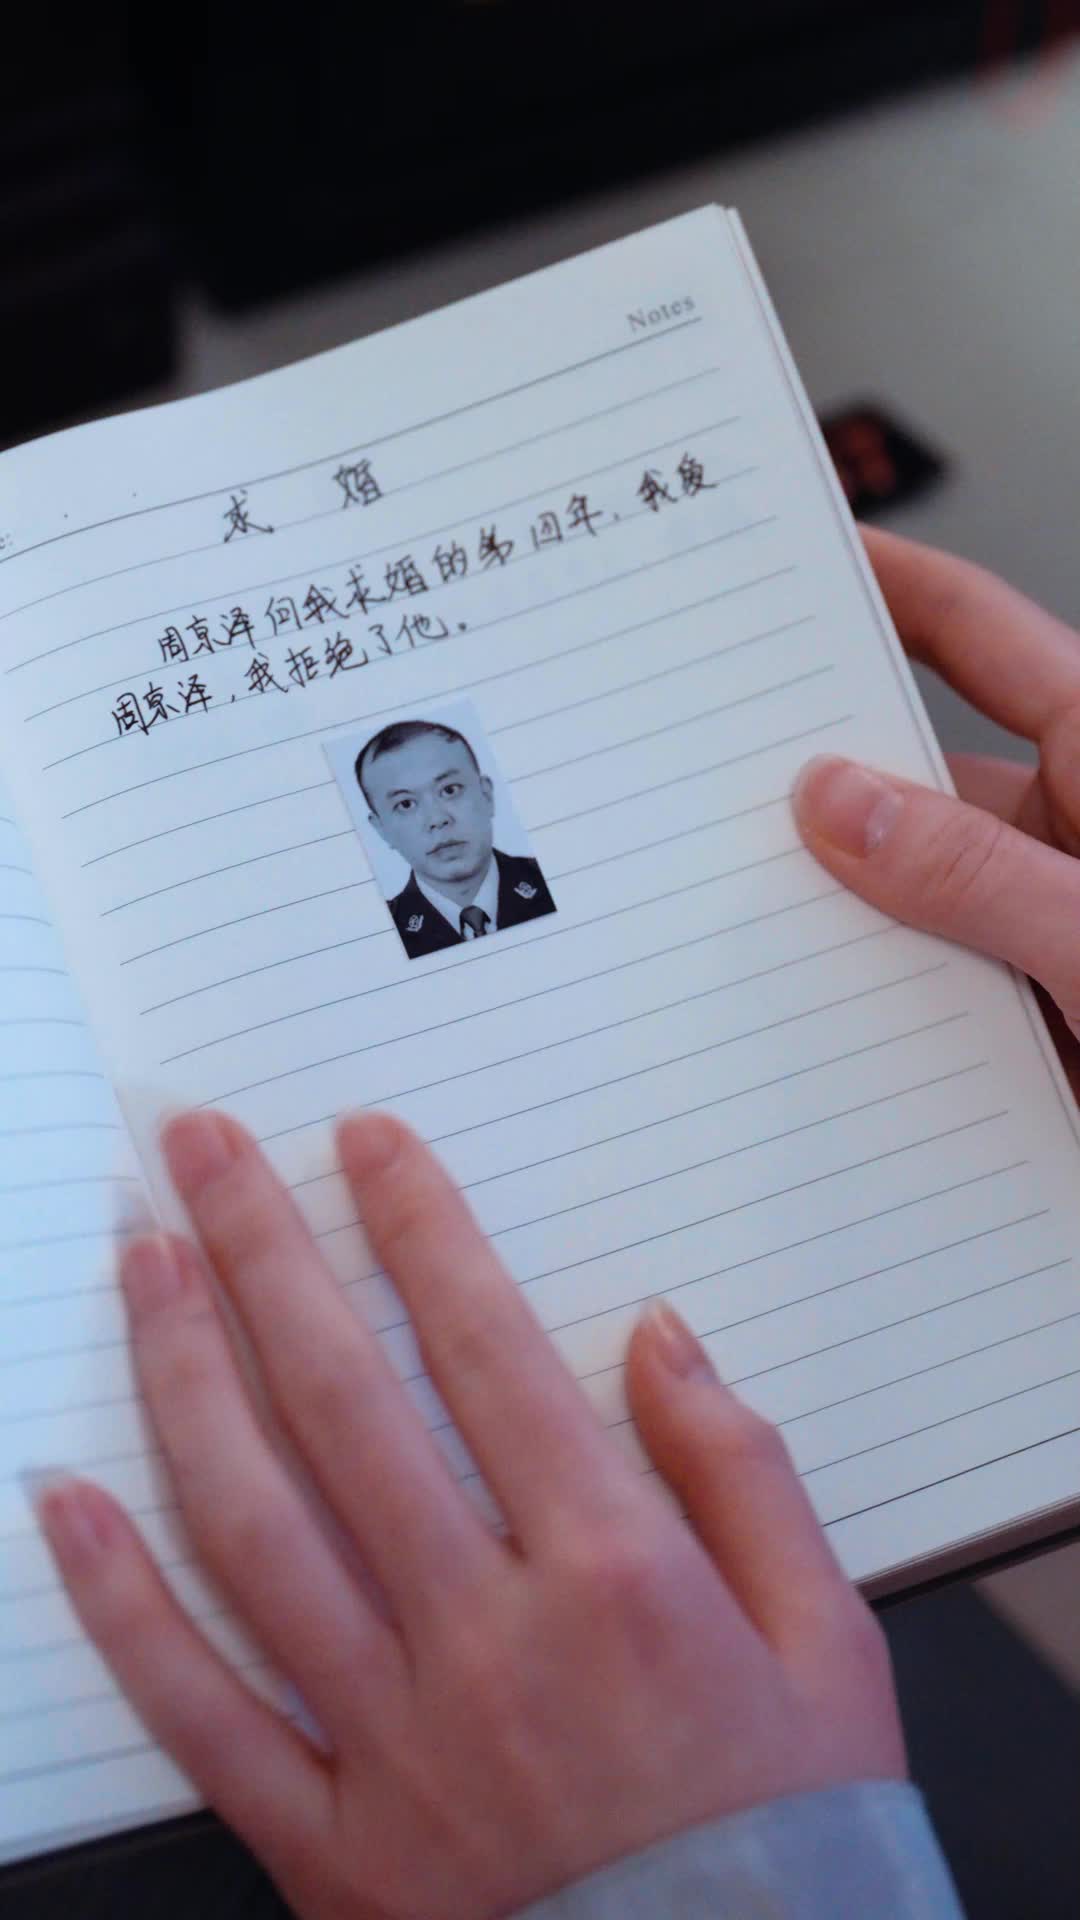 Notes
e:
求 婚
周京泽向我求婚的第四年，我爱
周京泽，我拒绝了他。